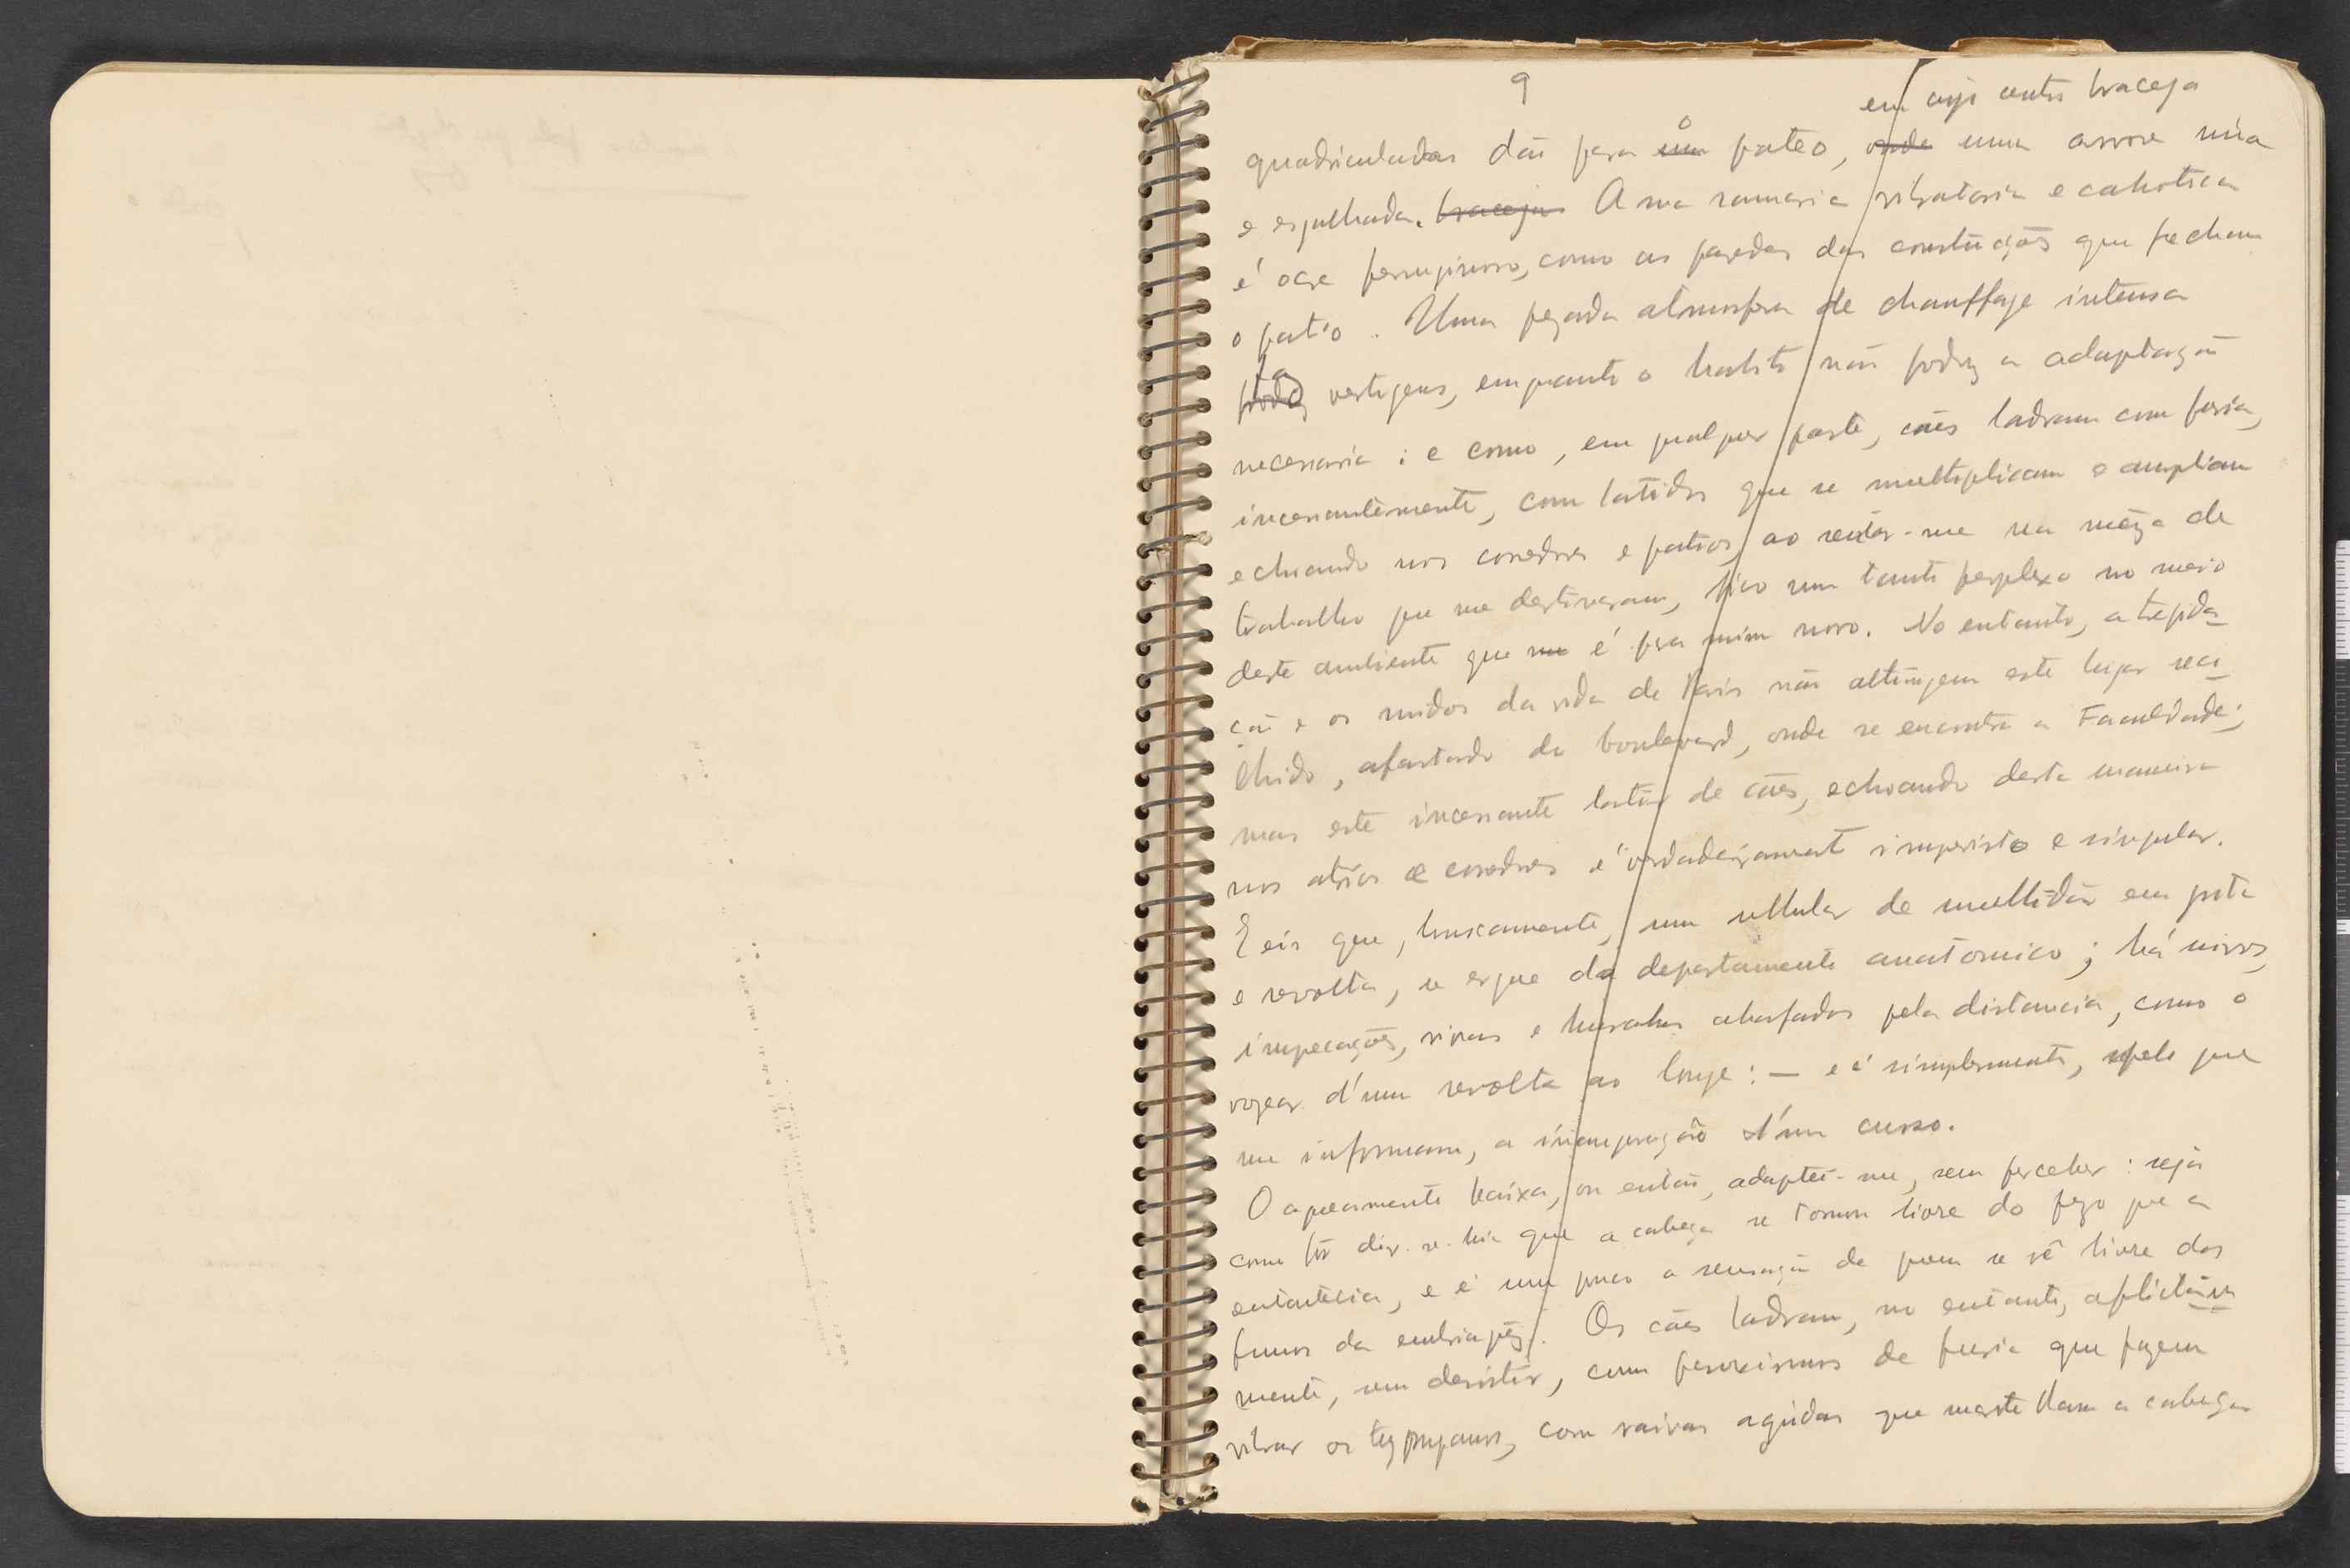 9
em cujo centro braceja
quadriculadas dão para um o pateo, onde uma arvore núa
e esgalhada. braceja A sua ramaria vibratoria e cahotica
é ocre ferruginoso, como as paredes das construções que fecham
o patio. Uma pezada atmosfera de chauffage intensa
faz vertigens, emquanto o habito não produz a adaptação
necessaria; e como, em qualquer parte, cães ladram com furia,
incessantemente, com latidos que se multiplicam e ampliam
echoando nos corredores e patios, ao sentar-me na mêza de
trabalho que me destinaram, fico um tanto perplexo no meio
deste ambiente que me é pra mim novo. No entanto, a trepida-
ção e os ruidos da vida de Paris não attingem este lugar reco-
lhido, afastado do boulevard, onde se encontra a Faculdade;
mas este incessante latir de cães, echoando desta maneira
nos atrios e corredores é verdadeiramente imprevisto e singular.
E eis que, bruscamente, um ullular de multidão em grita
e revolta, se ergue do departamento anatomico; há urros,
imprecações, vivas e hurrahs abafados pela distancia, como o
vozear d'uma revolta ao longe: — e é simplesmente, pelo que
me informam, a inauguração d'um curso.
O aquecimento baixa, ou então, adaptei-me, sem perceber: seja
como fôr dir-se-hia que a cabeça se torna livre do pezo que a
entontecia, e é um pouco a sensação de quem se vê livre dos
fumos da embriaguêz. Os cães ladram, no entanto, aflictiva-
mente, sem desistir, com paroxismos de furia que fazem
vibrar os tympanos, com raivas agúdas que martellam a cabeça